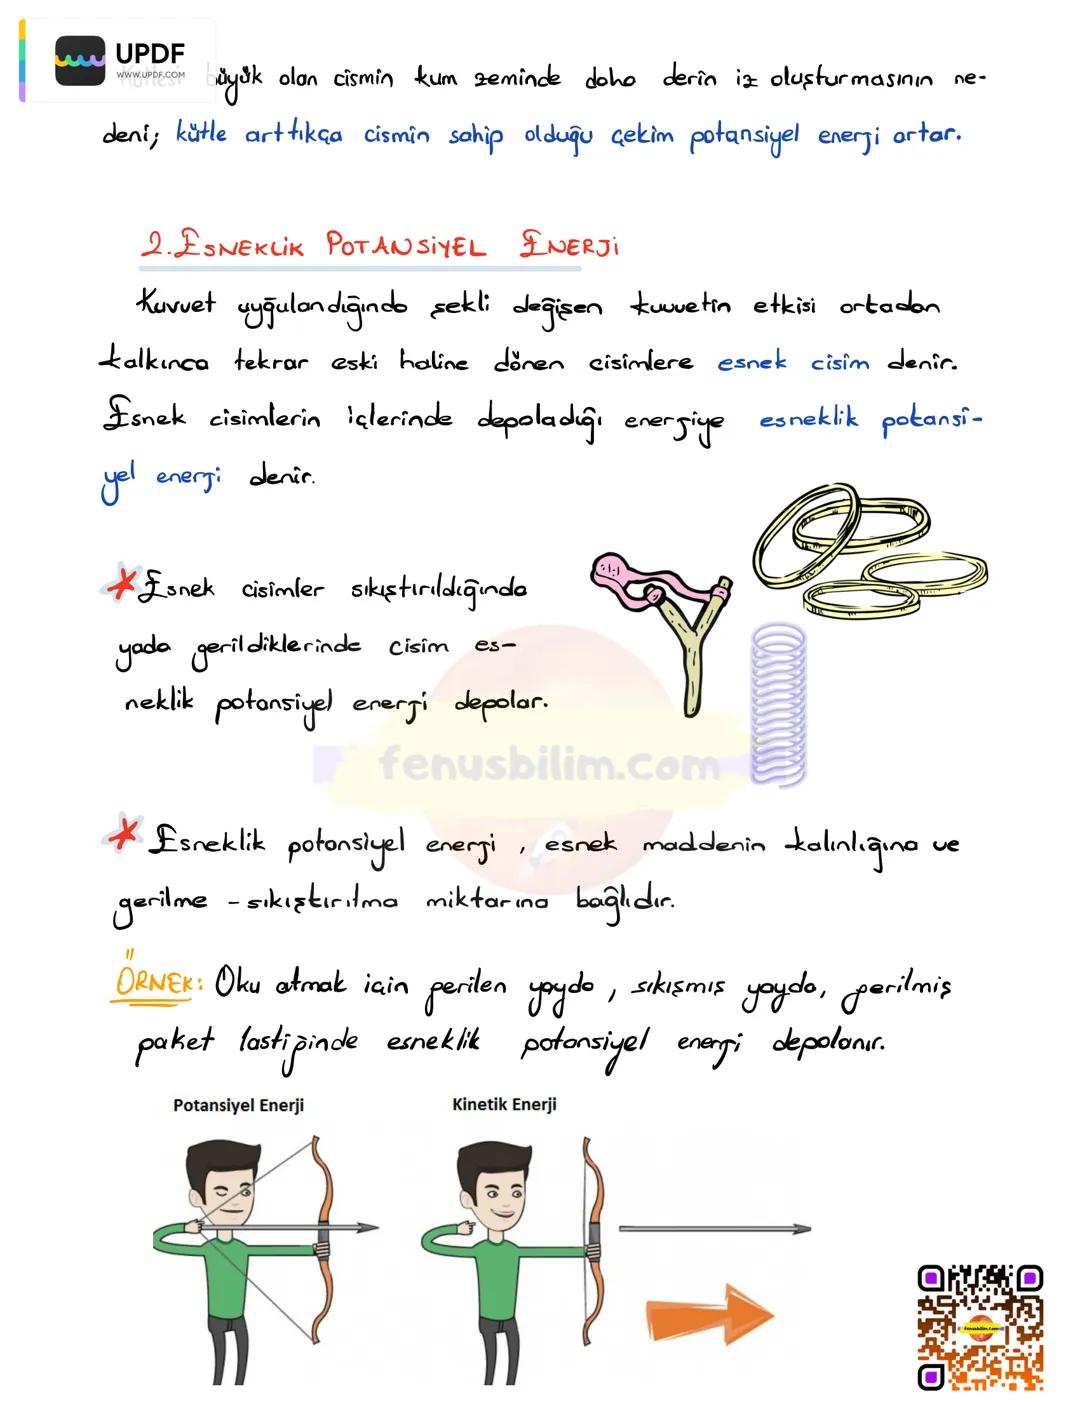 UPDF
WWW.UPDF.COM
Kütlesi büyük olan cismin kum zeminde daha derin iz oluşturmasının ne-
deni; kütle arttıkça cismin sahip olduğu çekim potansiyel enerji artar.
2. ESNEKLİK POTANSİYEL ENERJİ
Kuvvet uygulandığında şekli değişen kuvvetin etkisi ortadan
kalkınca tekrar eski haline dönen cisimlere esnek cisim denir.
Esnek cisimlerin içlerinde depoladığı enerjiye esneklik potansi-
yel enerji denir.
* Esnek cisimler sıkıştırıldığında
yada gerildiklerinde cisim es-
neklik potansiyel enerji depolar.
fenusbilim.com
* Esneklik potansiyel enerji, esnek maddenin kalınlığına ve
gerilme - sıkıştırılma miktarına bağlıdır.
ÖRNEK: Oku atmak için gerilen yayda, sıkışmış yayda, gerilmiş
paket lastiğinde esneklik potansiyel enerji depolanır.
Potansiyel Enerji
Kinetik Enerji
fenusbilim.com